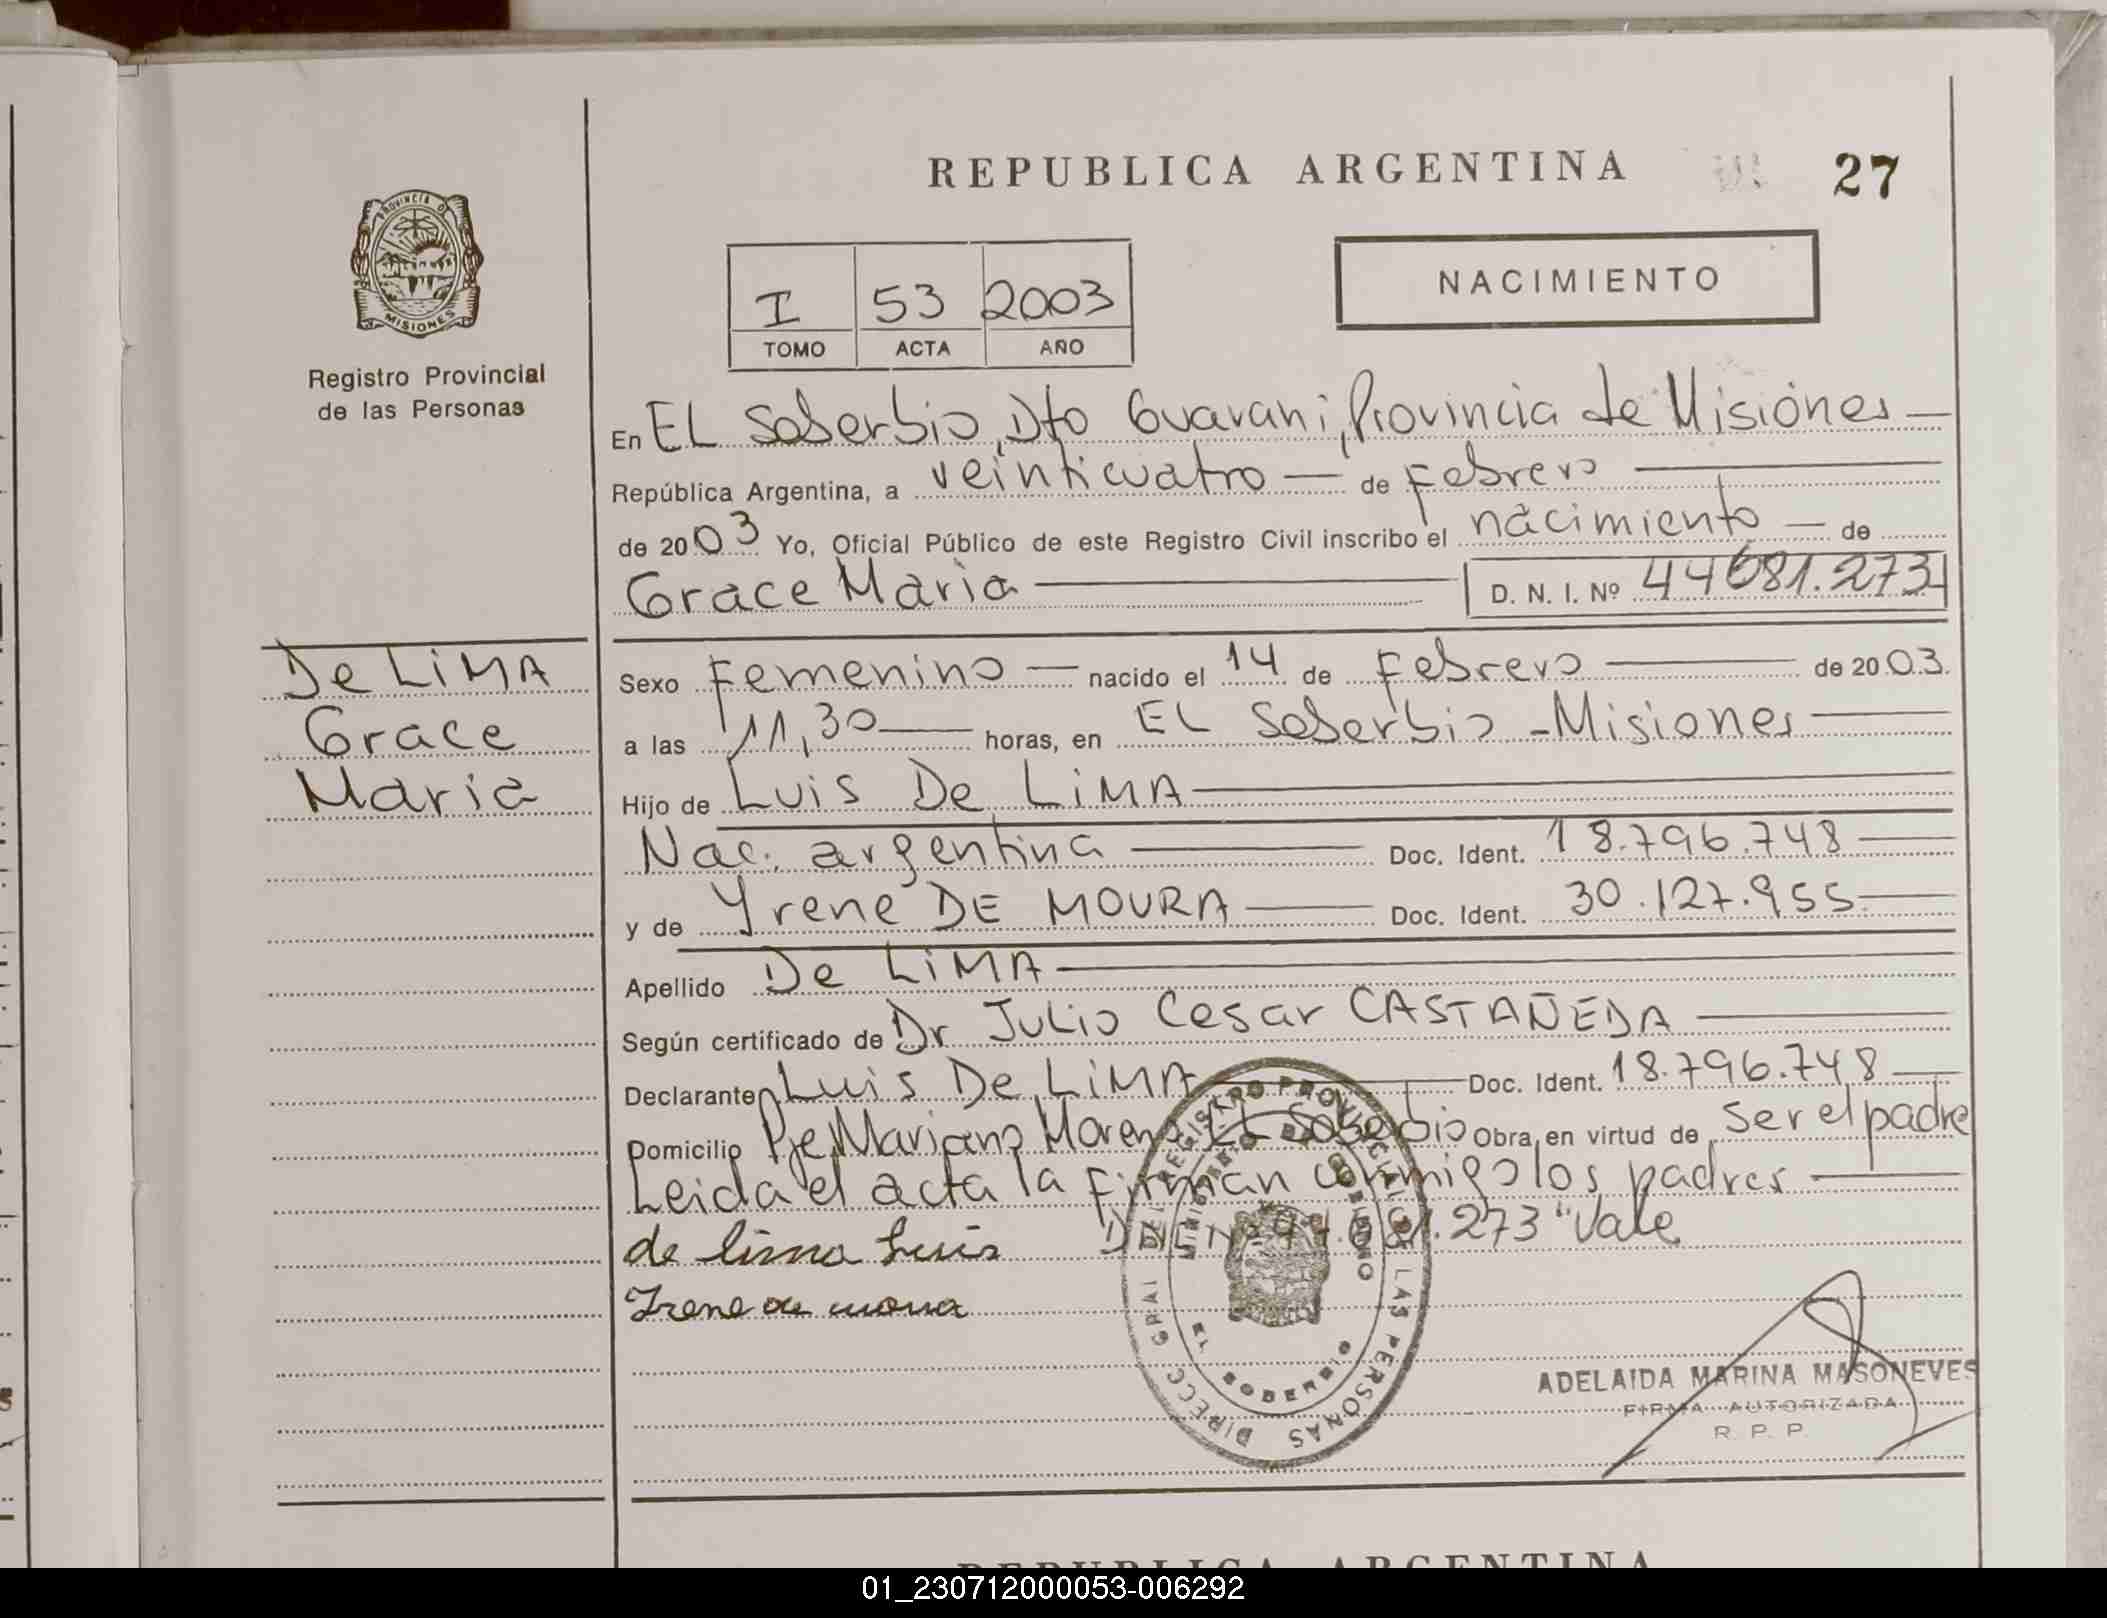 REPUBLICA ARGENTINA
27
PROVINCIA DE
MISIONES
Registro Provincial
de las Personas
I 53 2003
TOMO ACTA AÑO
NACIMIENTO
En EL Soberbio, Dto Guarani, Provincia de Misiones
República Argentina, a veinticuatro de Febrero
de 2003 Yo, Oficial Público de este Registro Civil inscribo el nacimiento de
Grace Maria D. N. I. Nº 44681.273
De LiMA
Grace
Maria
Sexo Femenino nacido el 14 de Febrero de 2003.
a las 11,30 horas, en EL Soberbio - Misiones
Hijo de Luis De LiMA
Nac. argentina Doc. Ident. 18.796.748
y de Yrene DE MOURA Doc. Ident. 30.127.955
Apellido De LiMA
Según certificado de Dr Julio Cesar CASTAÑEDA
Declarante Luis De LiMA Doc. Ident. 18.796.748
Domicilio Pje Mariano Moreno EL Soberbio Obra en virtud de ser el padre
Leida el acta la firman conmigo los padres
de lima Luis DNI Nº 44.681.273 "Vale
Irene de moura
DIRECC GRAL DEL REGISTRO PROVINCIAL DE LAS PERSONAS
MINISTERIO DE GOBIERNO
EL SOBERBIO
ADELAIDA MARINA MASONEVES
FIRMA AUTORIZADA
R. P. P.
REPUBLICA ARGENTINA
01_230712000053-006292